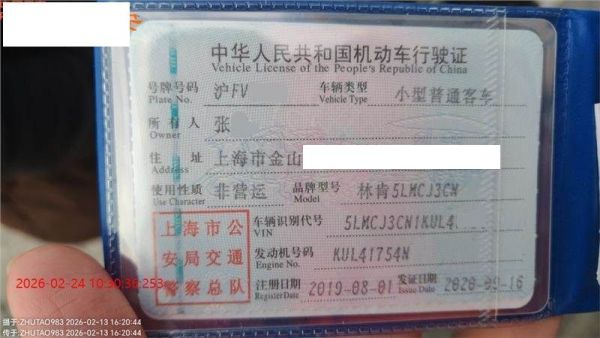 中华人民共和国机动车行驶证
Vehicle License of the People's Republic of China
号牌号码 沪FV 车辆类型 小型普通客车
Plate No. Vehicle Type
所有人 张
Owner
住址 上海市金山
Address
使用性质 非营运 品牌型号 林肯5LMCJ3CN
Use Character Model
上海市公 车辆识别代号 5LMCJ3CN1KUL4
VIN
安局交通 发动机号码 KUL41754N
Engine No.
警察总队 注册日期 2019-08-01 发证日期 2020-09-16
Register Date Issue Date
2026-02-24 10:30:36:253
摄于:ZHUTAO983 2026-02-13 16:20:44
传于:ZHUTAO983 2026-02-13 16:20:44